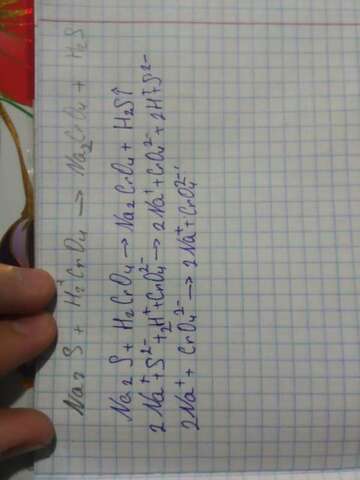 Na2 S + H2CrO4 → Na2CrO4 + H2S
Na2 S + H2CrO4 → Na2 CrO4 + H2S↑
2Na⁺ + S²⁻ + 2H⁺ + CrO4²⁻ → 2Na⁺ + CrO4²⁻ + 2H⁺ + S²⁻
2Na⁺ + CrO4²⁻ → 2Na⁺ + CrO4²⁻